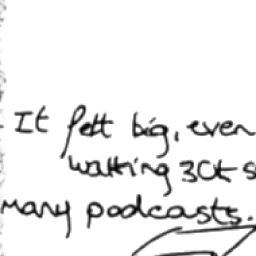 It felt big, even
walking 30+ s
many podcasts.